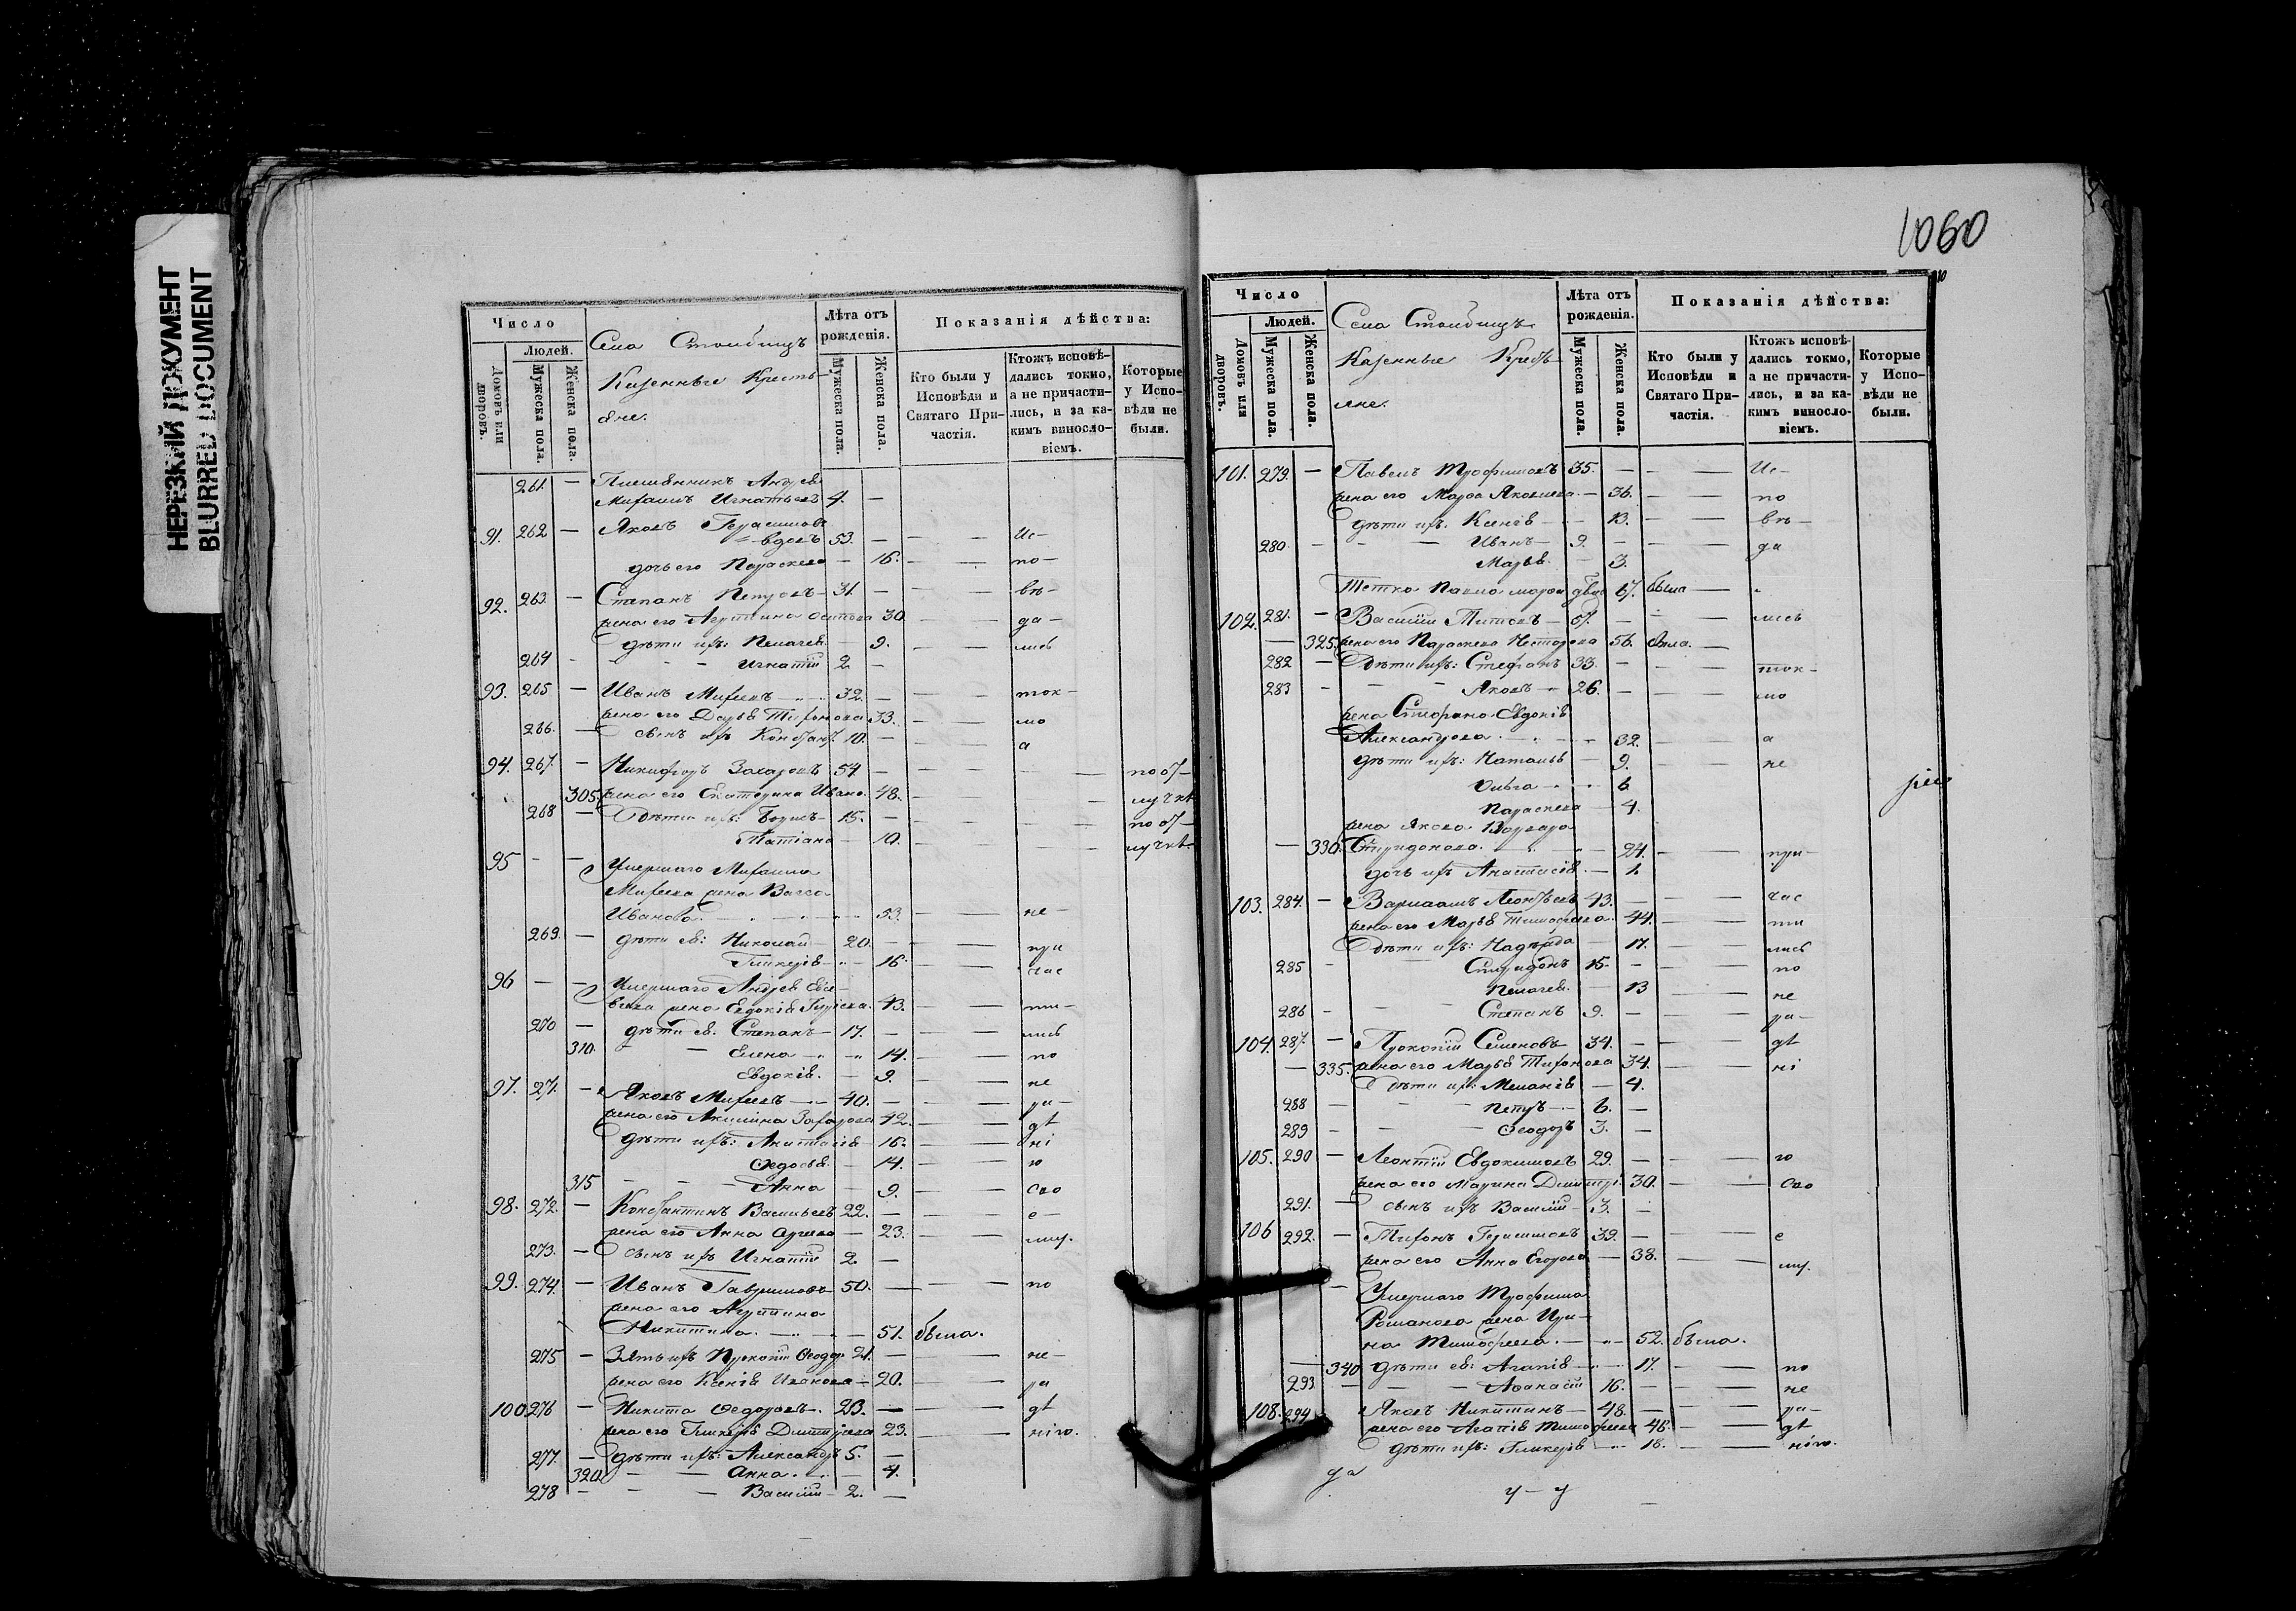 НЕРЕЗКИЙ ДОКУМЕНТ
BLURRED DOCUMENT
Число
Людей.
Домовъ или дворовъ.
Мужеска пола.
Женска пола.
Села Столбищъ
Казенные Кресть-
яне.
Лѣта отъ рожденія.
Мужеска пола.
Женска пола.
Показанія дѣйства:
Кто были у Исповѣди и Святаго При-частія.
Ктожъ исповѣ-дались токмо, а не причасти-лись, и за ка-кимъ винослo-віемъ.
Которые у Испо-вѣди не были.
261. — Племянникъ Андрея
Михаилъ Игнатьевъ 4. —
91. 262 — Яковъ Герасимовъ
вдовъ 53. — — — Ис-
дочь его Параскева — 16. — — по-
92. 263 — Степанъ Петровъ — 31. — — — вѣ-
жена его Агрипина Осипова 30. — — да-
дѣти ихъ: Пелагея — 9. — — лись
264 — — Игнатій 2. —
93. 265 — Иванъ Михеевъ — 32. — — — ток-
жена его Дарья Тихонова 33. — — мо
266. — сынъ ихъ Констант. 10. — — а
94. 267. — Никифоръ Захаровъ 54 — — — по от-
305. жена его Екатерина Ивано. 48. — — лучкѣ
268 — Дѣти ихъ: Борисъ — 15. — — — по от-
Татіана — 10. — — лучкѣ
95 — — Умершаго Михаила
Михеева жена Васса
Иванова. — 53. — — не-
269. — дѣти ея: Николай — 20. — — — при
Гликерія — 16. — — час
96 — — Умершаго Андрея Евсе-
вьева жена Евдокія 43. — — ти-
270 — дѣти ея: Степанъ — 17. — — — лись
310. — — Елена — 14. — — по
Евдокія. — 9. — — не
97. 271. — Яковъ Михеевъ — 40. — — — ра-
жена его Акилина Захарова 42. — — дѣ
дѣти ихъ: Анастасія — 16. — — ні
Ѳедосья — 14. — — ю
315 — — Анна — 9. — — сво
98. 272. — Константинъ Васильевъ 22. — — — е-
жена его Анна — 23. — — му.
273. — сынъ ихъ Игнатій 2. —
99. 274. — Иванъ Гавриловъ 50. — — — по
жена его Агрипина
Никитина. — 51. была.
275 — Зять ихъ Прокопій Ѳеодор 21. — — не-
жена его Ксенія Иванова — 20. — — ра
100 276 — Никита Ѳедоровъ. 23. — — — дѣ
жена его Гликерія Дмитріева 23. — — нію.
277. — дѣти ихъ: Александръ 5. —
320. — — Анна. — 4.
278 — — — Василій — 2. —
1060
Число
Людей.
Домовъ или дворовъ.
Мужеска пола.
Женска пола.
Села Столбищъ
Казенные Кресть-
яне.
Лѣта отъ рожденія.
Мужеска пола.
Женска пола.
Показанія дѣйства:
Кто были у Исповѣди и Святаго При-частія.
Ктожъ исповѣ-дались токмо, а не причасти-лись, и за ка-кимъ винослo-віемъ.
Которые у Испо-вѣди не были.
101. 279. — Павелъ Трофимовъ 35. — — — Ис-
жена его Марѳа Яковлева — 36. — — по
дѣти ихъ: Ксенія — 13. — — вѣ-
280. — — Иванъ — 9. — — — да
Марья. — 3.
Тетка Павла 67. была —
102. 281. — Василій Титовъ — 57. — — лись
— 325. жена его Параскева Нестерова 56. была. —
282 — Дѣти ихъ: Стефанъ 33. — — — ток-
283 — — Яковъ — 26. — — — мо
жена Стефана Евдокія
Александрова. — 32. — — а
дѣти ихъ: Наталья — 9. — — не
Ольга — 6
Параскева — 4.
жена Якова Варвара
— 330. Спиридонова. — 24. — — при-
дочь ихъ Анастасія. — 1
103. 284. — Варлаамъ Леонтьевъ 43. — — — час
жена его Марья Тимофеева. 44. — — ти
Дѣти ихъ: Надежда — 17. — — лись
285 — Спиридонъ 15. — — — по
Пелагея. — 13 — — не
286 — — Степанъ 9. — — — ра-
104. 287. — Прокопій Семеновъ 34. — — — дѣ
— 335. жена его Марья Тихонова 34. — — ні
Дѣти ихъ: Меланія — 4.
288 — — Петръ — 6. —
289 — — Ѳеодоръ 3. —
105. 290 — Леонтій Евдокимовъ 29. — — — ю
жена его Марина Димитрі. 30. — — сво
291. — сынъ ихъ Василій — 3. —
106 292. — Тихонъ Герасимовъ 39. — — — е
жена его Анна Егорова — 38. — — му.
— Умершаго Трофима
Романова жена Ири-
на Тимофеева. — 52. была.
— 340 дѣти ея: Агапія — 17. — — по
293. — — Аѳанасій 16. — — — не
108. 294 Яковъ Никитинъ — 48. — — — ра-
жена его Агапія Тимофеева 46. — — дѣ
дѣти ихъ: Гликерія — 18. — — нію.